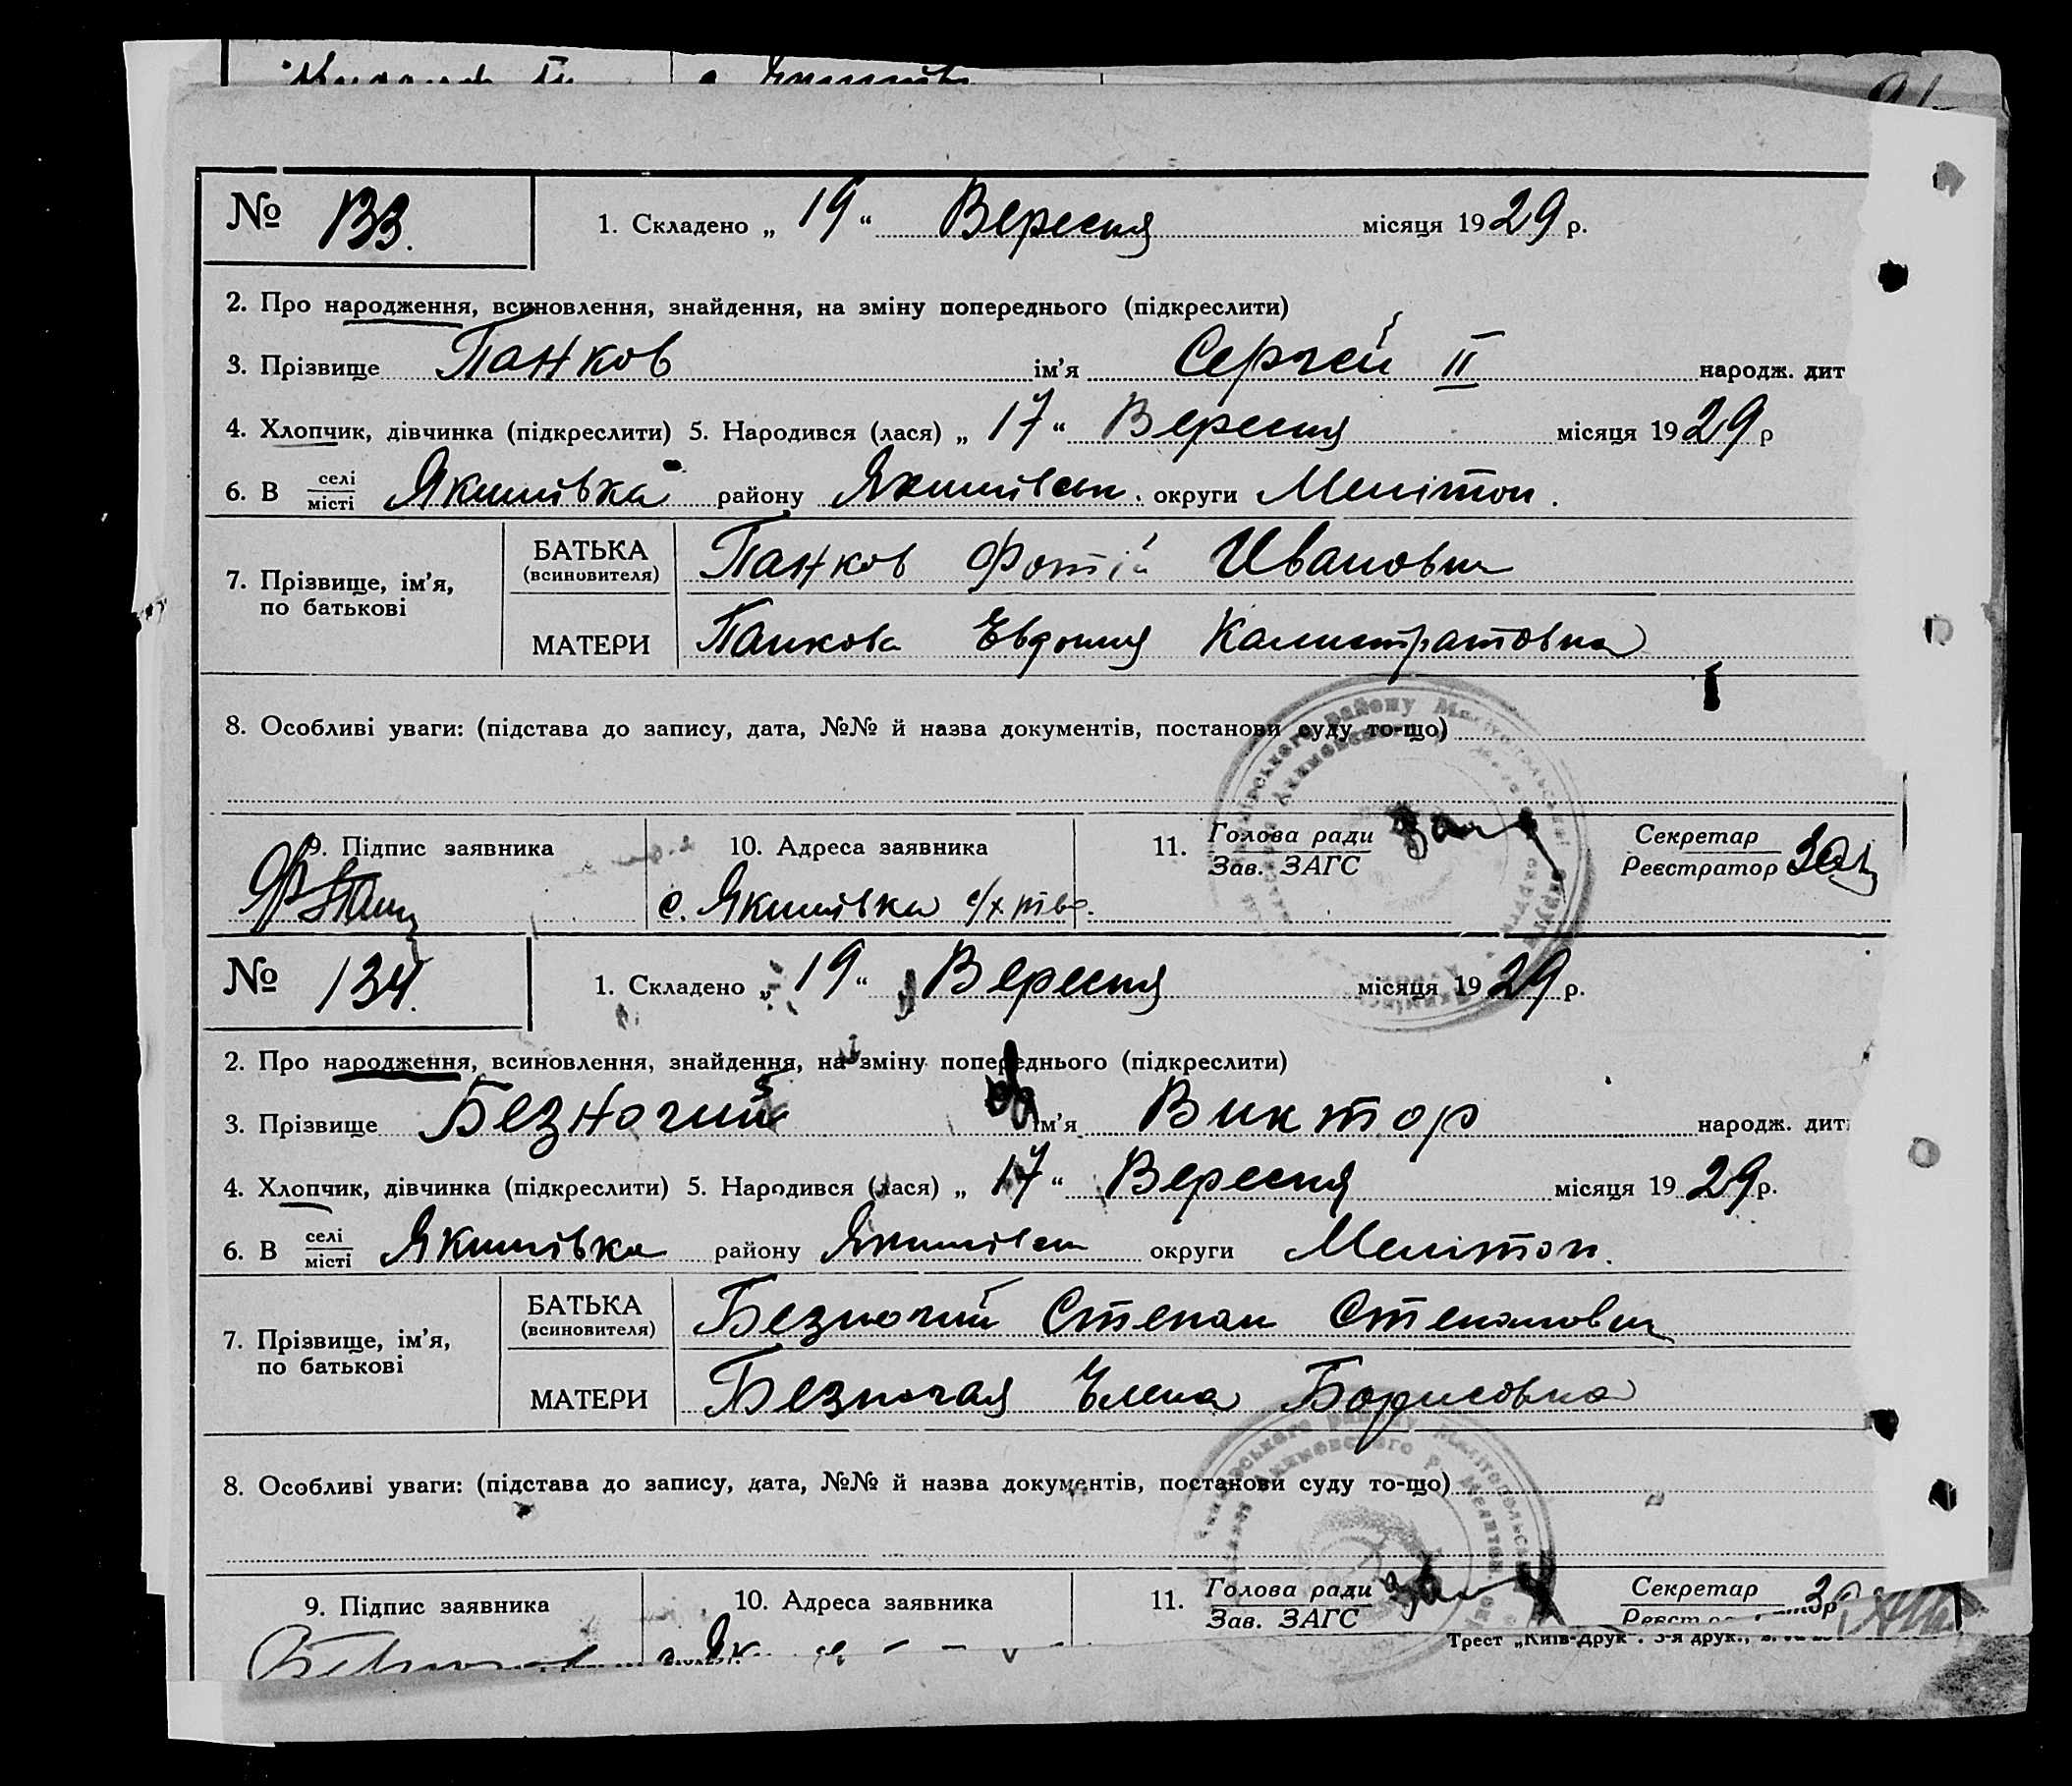 № 133.
1. Складено „ 19 “ Вересня місяця 1929 р.
2. Про народження, всиновлення, знайдення, на зміну попереднього (підкреслити)
3. Прізвище Панков ім’я Сергей II народж. дит
4. Хлопчик, дівчинка (підкреслити) 5. Народився (лася) „ 17 “ Вересня місяця 1929 р
6. В селі місті Якимівка району Якимівськ. округи Мелітоп.
7. Прізвище, ім’я, по батькові
БАТЬКА (всиновителя) Панков Фотій Иванович
МАТЕРИ Панкова Евдокия Калистратовна
8. Особливі уваги: (підстава до запису, дата, №№ й назва документів, постанови суду то-що)
9. Підпис заявника
10. Адреса заявника
11. Голова ради Зав. ЗАГС
Секретар Реєстратор
с. Якимівка с/х
№ 134.
1. Складено „ 19 “ Вересня місяця 1929 р.
2. Про народження, всиновлення, знайдення, на зміну попереднього (підкреслити)
3. Прізвище Безногий ім’я Виктор народж. дит
4. Хлопчик, дівчинка (підкреслити) 5. Народився (лася) „ 17 “ Вересня місяця 1929 р.
6. В селі місті Якимівка району Якимівськ округи Мелітоп.
7. Прізвище, ім’я, по батькові
БАТЬКА (всиновителя) Безногий Степан Степанович
МАТЕРИ Безногая Елена Борисовна
8. Особливі уваги: (підстава до запису, дата, №№ й назва документів, постанови суду то-що)
9. Підпис заявника
10. Адреса заявника
11. Голова ради Зав. ЗАГС
Секретар
Трест „Київ-Друк“.